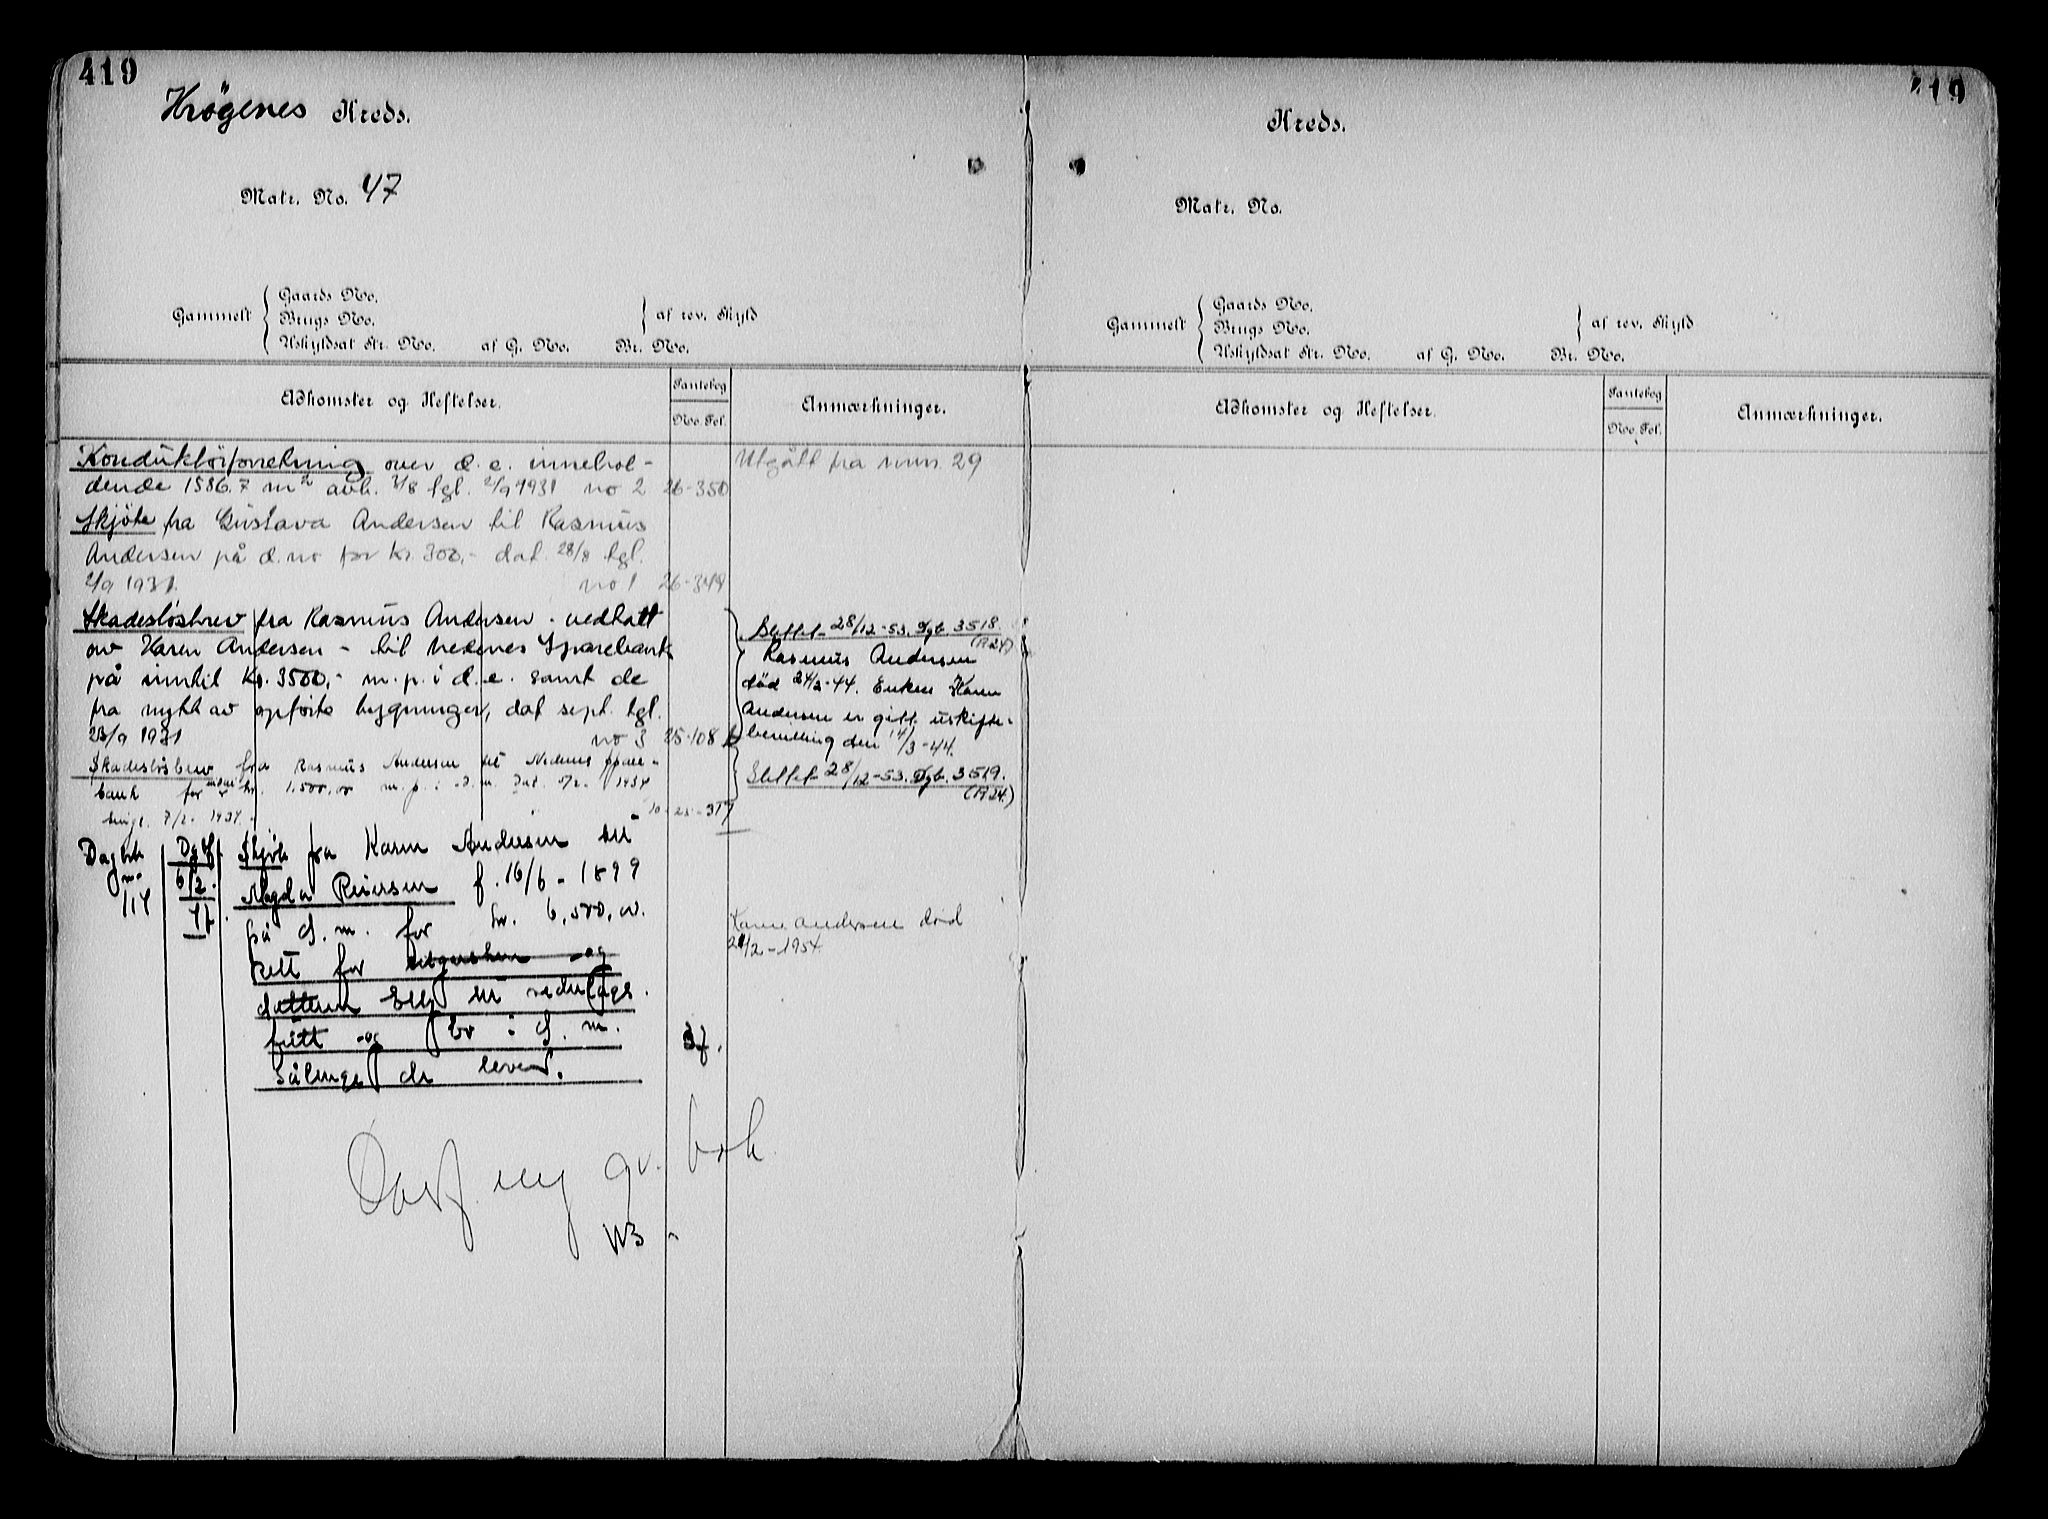 419
Krögenes Kreds.
Matr. No. 47
Gammelt
Gaards No.
Brugs No.
Uskyldsat Str. No. af G. No. Br. No.
af rev. Skyld
Adkomster og Heftelser.
Pantebog
No. Fol.
Anmærkninger.
Konduktörforretning over d. e. innehol-
dende 1586.7 m² avh. /8 tgl. 2/9 1931 no 2 26-350
Utgått fra mnr. 29
Skjöte fra Gustava Andersen til Rasmus
Andersen på d. no for kr. 300,- dat. 28/8 tgl.
2/9 1931. no 1 26-349
Skadeslösbrev fra Rasmus Andersen - vedtatt
av Karen Andersen - til Nedenes Sparebank
på inntil Kr. 3500,- m. p. i d. e. samt de
fra nytt av opförte bygninger, dat sept. tgl.
23/9 1931 no 3 25-108
Slettet 28/12-53. Dgb. 3518.
(1924)
Rasmus Andersen
död 24/2-44. Enken Karen
Andersen er gitt uskifte-
bevilling den 14/3-44.
Skadeslösbrev fra Rasmus Andersen til Nedenes Spare-
bank for inntil kr. 1,500,00 m. p. i d. m. Dat. /2 - 1934
tingl. 7/2 - 1934. 10-25-317
Slettet 28/12-53. Dgb. 3519.
(1934)
Dagbok
no
114
Dgf.
6/2.
47.
Skjöte fra Karen Andersen til
Magda Reiersen f. 16/6 - 1899
på d. m. for kr. 6,500,00.
Rett for og
datteren Elly til vederlags-
fritt og bo i d. m.
sålenge de lever.
df.
Karen Andersen död
21/2-1954.
Overf. ny gr. bok
NB
419
Kreds.
Matr. No.
Gammelt
Gaards No.
Brugs No.
Uskyldsat Str. No. af G. No. Br. No.
af rev. Skyld
Adkomster og Heftelser.
Pantebog
No. Fol.
Anmærkninger.